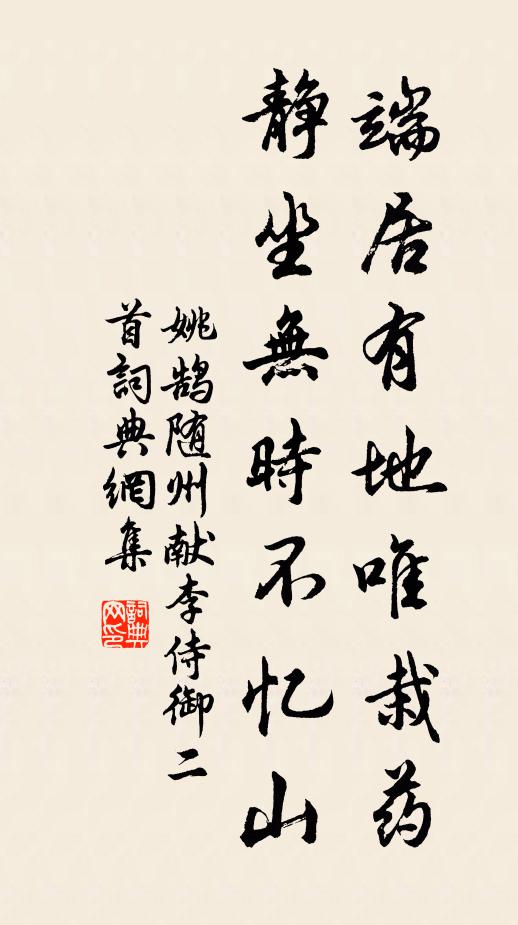 端居有地唯栽药
静坐無時不忆山
姚鹄随州献李侍御二
首詞典網集
詞典网印